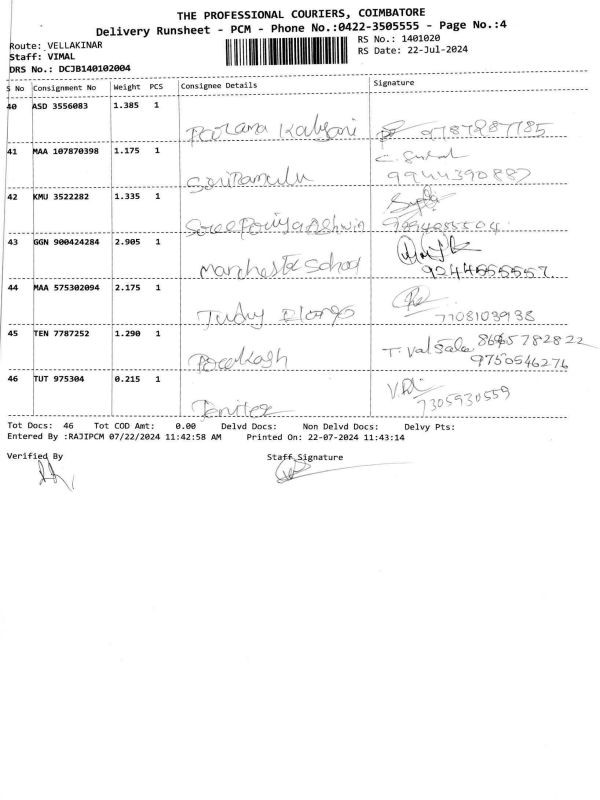 THE PROFESSIONAL COURIERS, COIMBATORE
Delivery Runsheet - PCM - Phone No.:0422-3505555 - Page No.:4
Route: VELLAKINAR
RS No.: 1401020
Staff: VIMAL
RS Date: 22-Jul-2024
DRS No.: DCJB140102004
S No Consignment No Weight PCS Consignee Details Signature
40 ASD 3556083 1.385 1
Kalyani 9787287785
41 MAA 107870398 1.175 1
9944390887
42 KMU 3522282 1.335 1
43 GGN 900424284 2.905 1
Manchester School 9244555557
44 MAA 575302094 2.175 1
Judy 7708103938
45 TEN 7787252 1.290 1
8695782822
T. Valsala 9750546276
46 TUT 975304 0.215 1
7305930559
Tot Docs: 46 Tot COD Amt: 0.00 Delvd Docs: Non Delvd Docs: Delvy Pts:
Entered By :RAJIPCM 07/22/2024 11:42:58 AM Printed On: 22-07-2024 11:43:14
Verified By Staff Signature